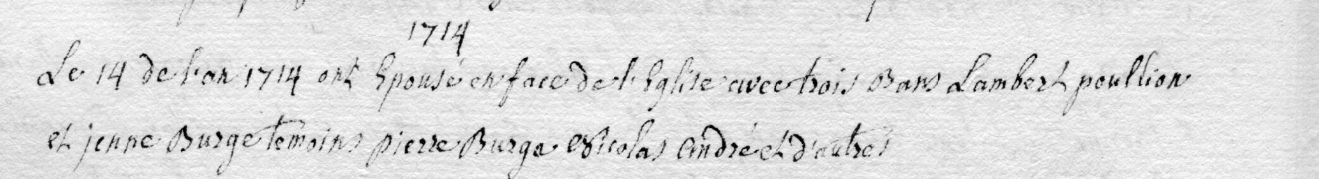 1714
Le 14 de l'an 1714 ont Epousé en face de l'Eglise avec trois Bans Lambert poullion
et jenne Burge temoins pierre Burge Nicolas André et d'autres